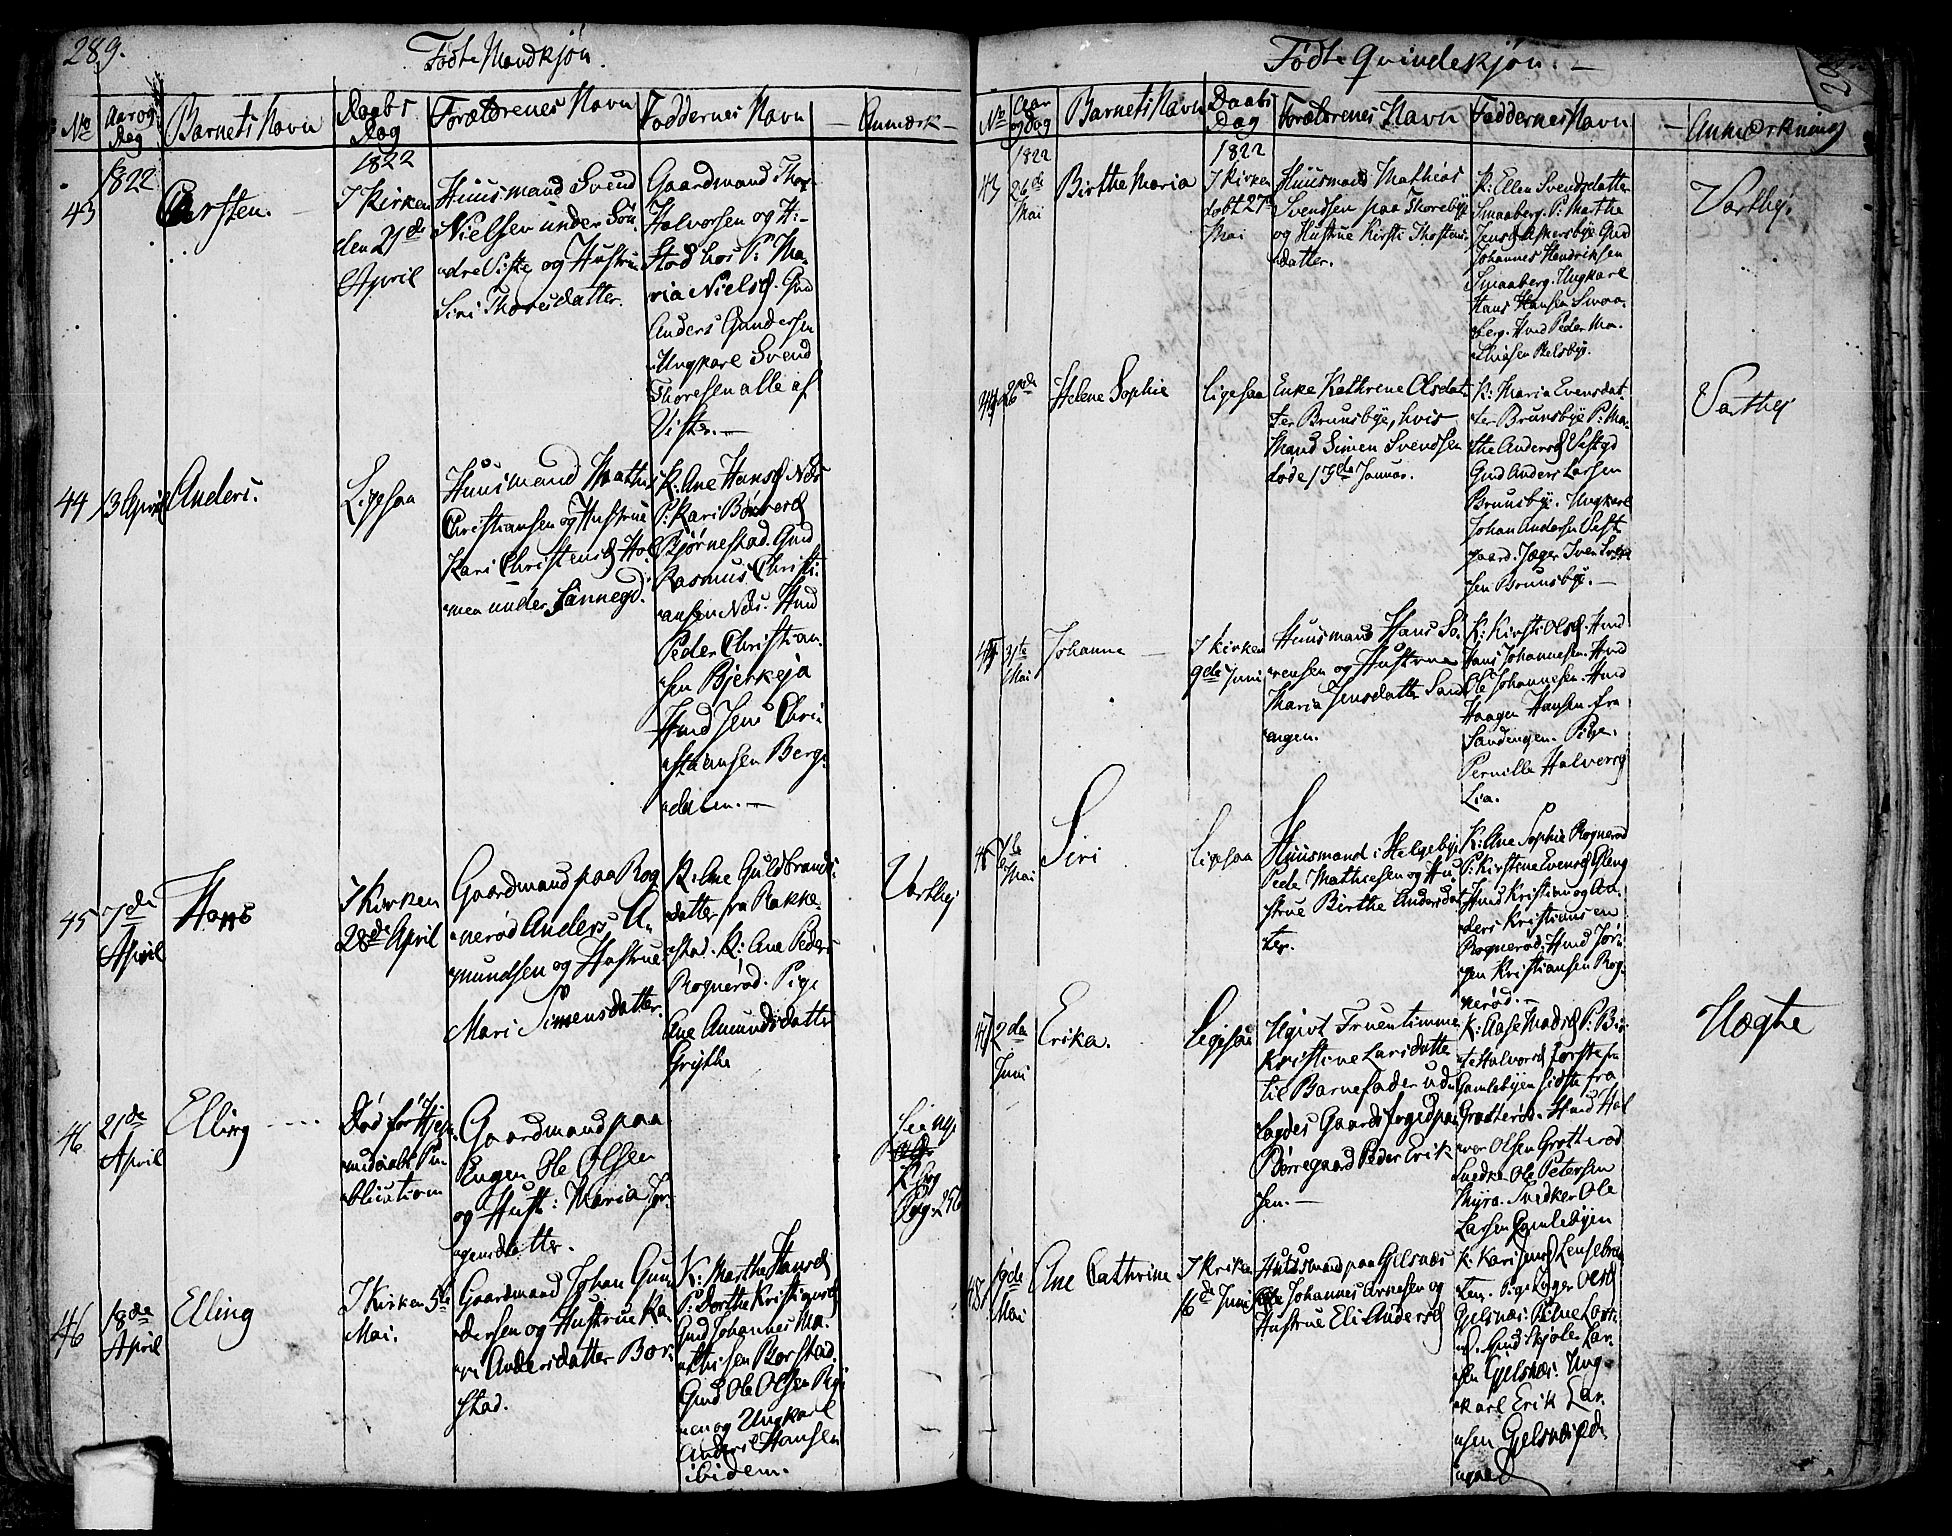 289.
Födte Mandkjön.
No
Aar og
Dag
Barnets Navn
Daabs
Dag
Forældrenes Navn
Faddernes Navn
Anmærk
1822
1822
43
Carsten.
I Kirken
den 21de
April
Huusmand Svend
Nielsen under Sön
dre Viste og Hustrue
Siri Thoresdatter.
Gaardmand Thor
Halvorsen og H:
Stod hos P: Ma-
ria Nielsd. Gmd
Anders Gundersen
Ungkarl Svend
Thoresen alle af
Vister.
44
13 April
Anders.
Ligesaa
Huusmand Mathis
Christiansen og Hustrue
Kari Christensd Hol
men under
K. Ane Hansd Næs
P: Kari
Bjørnestad. Gmd
Rasmus Christi-
ansen Næs. Hmd
Peder Christian-
sen Bjerkeja
Hmd Jens Chri-
stiansen Berg-
dalen.
45
7de
April
Hans
I Kirken
28de April
Gaardmand paa Rog
nerød Anders A-
mundsen og Hustrue
Mari Simensdatter.
K. Ane Guldbrands-
datter fra Rakke-
stad. K: Ane Peders
Rognerød. Pige
Ane Amundsdatter
46
21de
April
Elling
Død för Hjem-
medaabs Pu-
blication
Gaardmand paa
Engen Ole Olsen
og Hust: Maria Jör-
gensdatter.
Pag. 256
46
18de
April
Elling
I Kirken 5te
Mai.
Gaardmand Johan Gun
dersen og Hustrue Ka-
ri Andersdatter Bor-
stad.
K: Marthe Hansd
P: Dorthe Kristiansd
Gmd Johannes Ma-
thisen Borstad.
Gmd Ole Olsen
og Ungkarl
Anders Hansen
ibidem.
Vartbej
Födte Qvindekjön.
No
Aar
og Dag
Barnets Navn
Daabs
Dag
Forældrenes Navn
Faddernes Navn
Anmærkning
1822
1822
43
26de
Mai
Birthe Maria
I Kirken
døbt 27
Mai
Huusmand Mathias
Svendsen paa Thorebye
og Hustrue Kirsti Thostens-
datter.
K: Ellen Svendsdatter
Smaaberg. P: Marthe
Jensd Gmd
Johannes Hendriksen
Smaaberg. Ungkarl
Hans Hansen Smaa-
berg. Hmd Peder Ma-
thiasen
Vartbej
44
26de
Helene Sophie
Ligesaa
Enke Kathrene Olsdat-
ter Brunsbye, hvis
Mand Simen Svendsen
døde 17de Januar.
K: Maria Evensdat-
ter Brunsbye P: Ma-
the Andersd Vestgd
Gmd Anders Larsen
Brunsbye. Ungkarl
Johan Andersen Vest-
gaard. Jæger Sven Sven
sen Brunsbye.
Vartbej
45
31te
Mai
Johanne
I Kirken
9de Juni
Huusmand Hans Sö-
rensen og Hustrue
Maria Jensdatter Sand
engen.
K: Kirsti Olsd. Hmd
Hans Johannesen. Hmd
Ole Johannesen. Hmd
Haagen Hansen fra
Sandengen. Pige
Pernille Halvorsd
Lia.
Mai
Siri
Ligesaa
Huusmand i Helgebye
Peder Mathiesen og Hu-
strue Birthe Andersdat
ter.
K: Ane Sophie Rognerød
P: Kirstine Evensd
Hmd Kristian og An-
ders Kristiansen
Rognerød. Hmd Jör-
gen Kristiansen Rog-
nerød.
47
2de
Juni
Erika.
Ligesaa
Ugivt Fruentimmer
Kristine Larsdatter
til Barnefader ud-
lagdes Gaardsfoged paa
Börregaard Peder Erik
sen.
K: Aase Madsd P: Bir-
te Halvorsd förste fra
Gamlebyen sidste fra
Grötteröd. Hmd Hal
vor Olsen Grötteröd
Snedker Ole Petersen
Myra. Snedker Ole
Larsen Gamlebyen
Uægte
48
19de
Mai
Ane Cathrine
I Kirken
16de Juni
Huusmand paa Gjelsnæs
Johannes Arnesen og
Hustrue Eli Andersd
K: Kari Jensd
Pige Inger Olsd
Gjelsnæs. P: Ane Lars
d. Gmd Lar-
sen Gjelsnæs. Ung-
karl Erik Lar-
sen Gjelsnæs